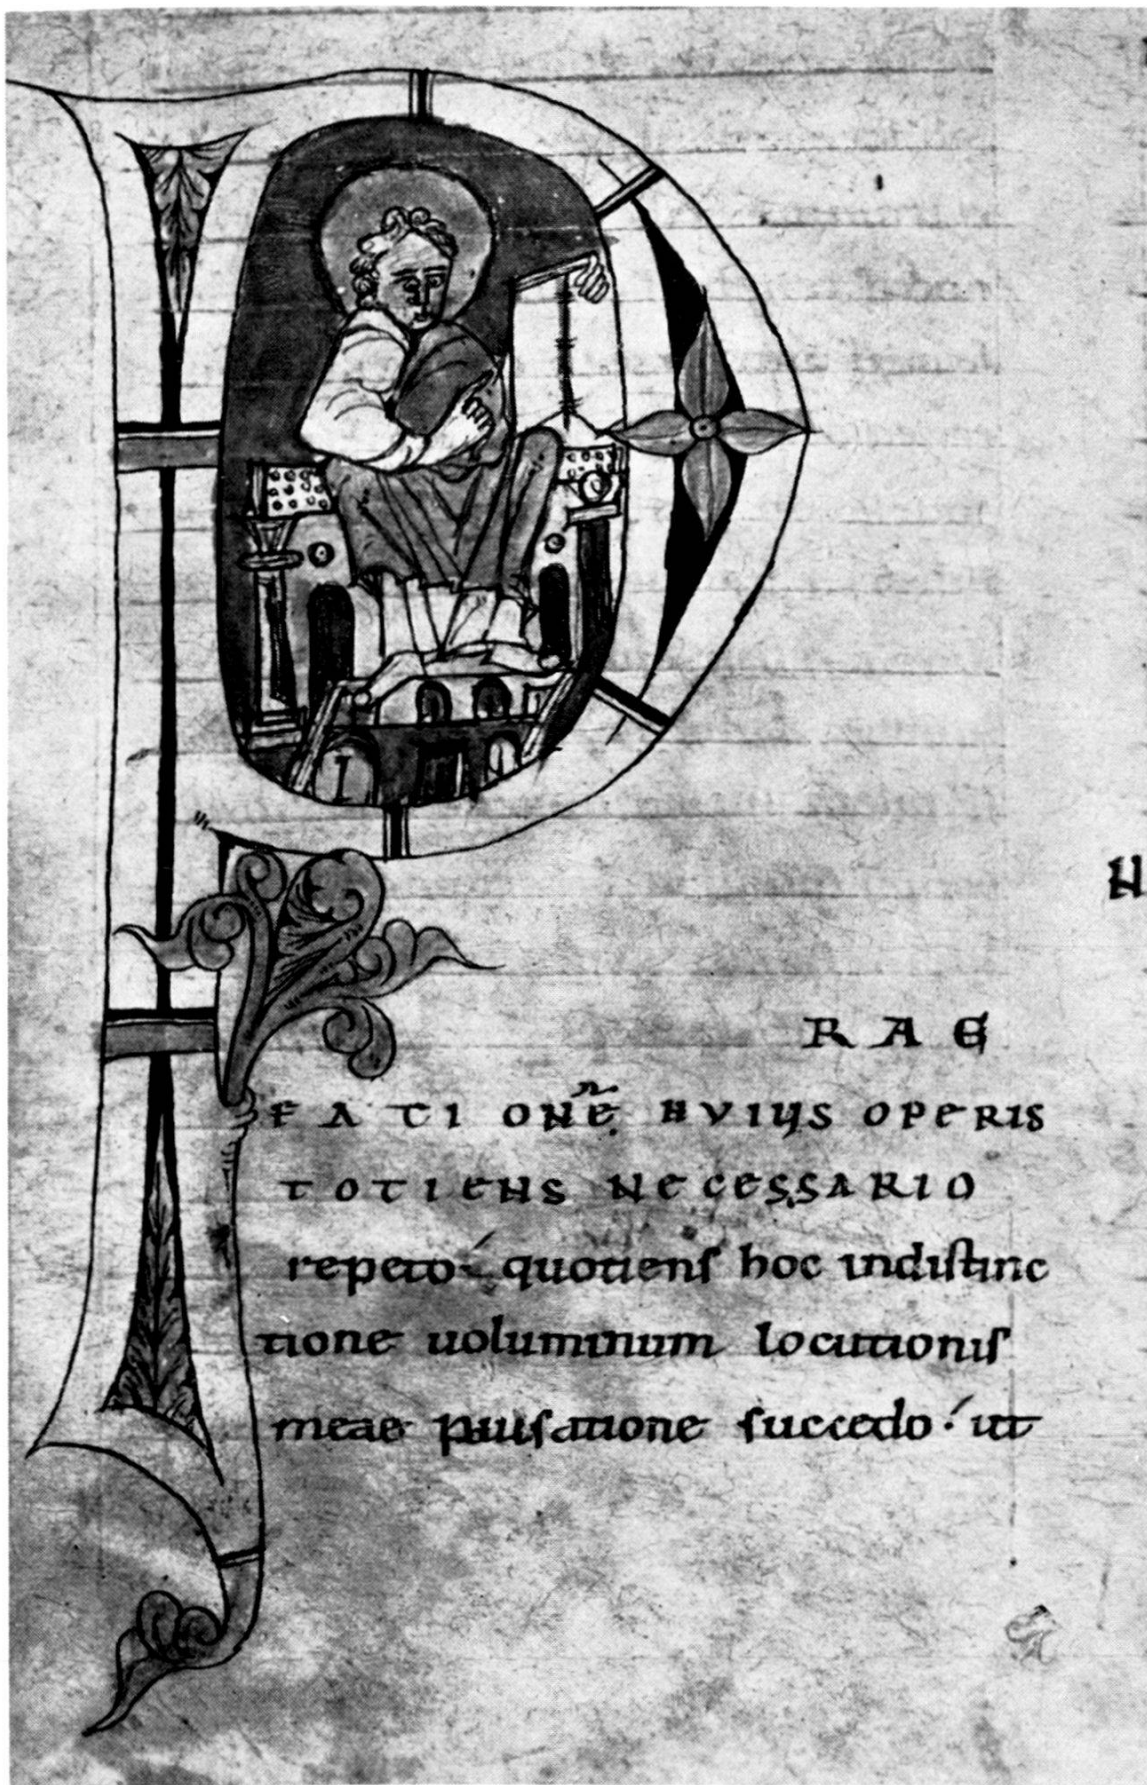 P
RAE
FATIONE HVIUS OPERIS
TOTIENS NECESSARIO
repeto· quotiens hoc indistinc
tione uoluminum locutionis
meae pausatione succedo· ut